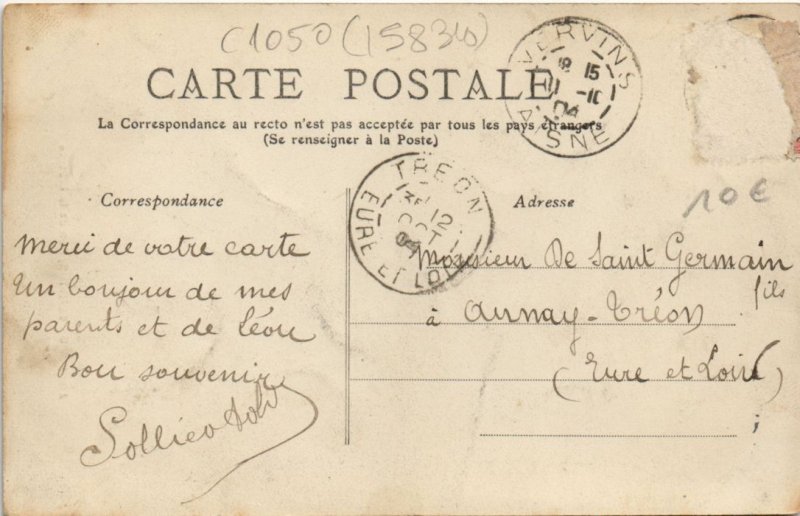 C1050 (1583 )
CARTE POSTALE
La Correspondance au recto n'est pas acceptée par tous les pays étrangers
(Se renseigner à la Poste)
VERVINS
15
11 -10
04
AISNE
TRÉON
12
OCT
04
EURE ET LOIR
Correspondance
Merci de votre carte
Un bonjour de mes
parents et de Léon
Bon souvenir
Adresse
10€
Monsieur De Saint Germain
fils
à Aunay-Tréon
(Eure et Loir)